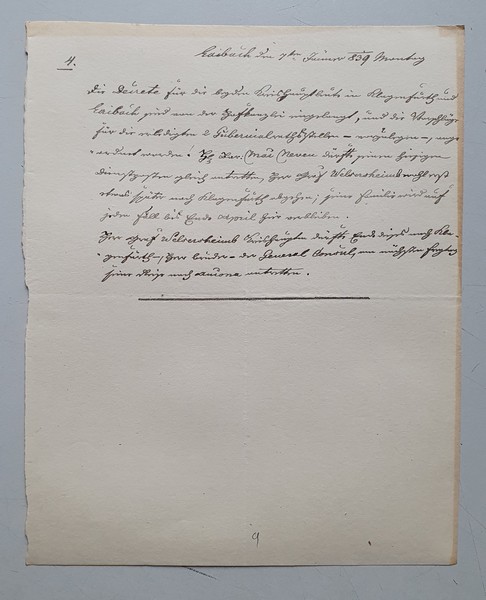 4.
Laibach den 7ten Jänner 839 Montag
Die Decrete für die beyden Kreishauptleute in Klagenfurth und
Laibach sind von der Hofkanzlei eingelangt, und die Vorschläge
für die erledigten 2 Gubernialrathsstellen –
werden! Hr Bar: Mac Neven dürfte seinen hiesigen
Dienstposten gleich antretten, Herr Graf Welsersheimb wohl erst
etwas später nach Klagenfurth abgehen; seine Familie wird auf
jeden Fall bis Ende April hier verbleiben.
Herr Graf Welsersheimb Kreishauptm dürfte Ende dieses nach Kla-
genfurth, Herr Bruder – der General Consul, am nächsten Freytag
seine Reise nach Ancona antretten.
9